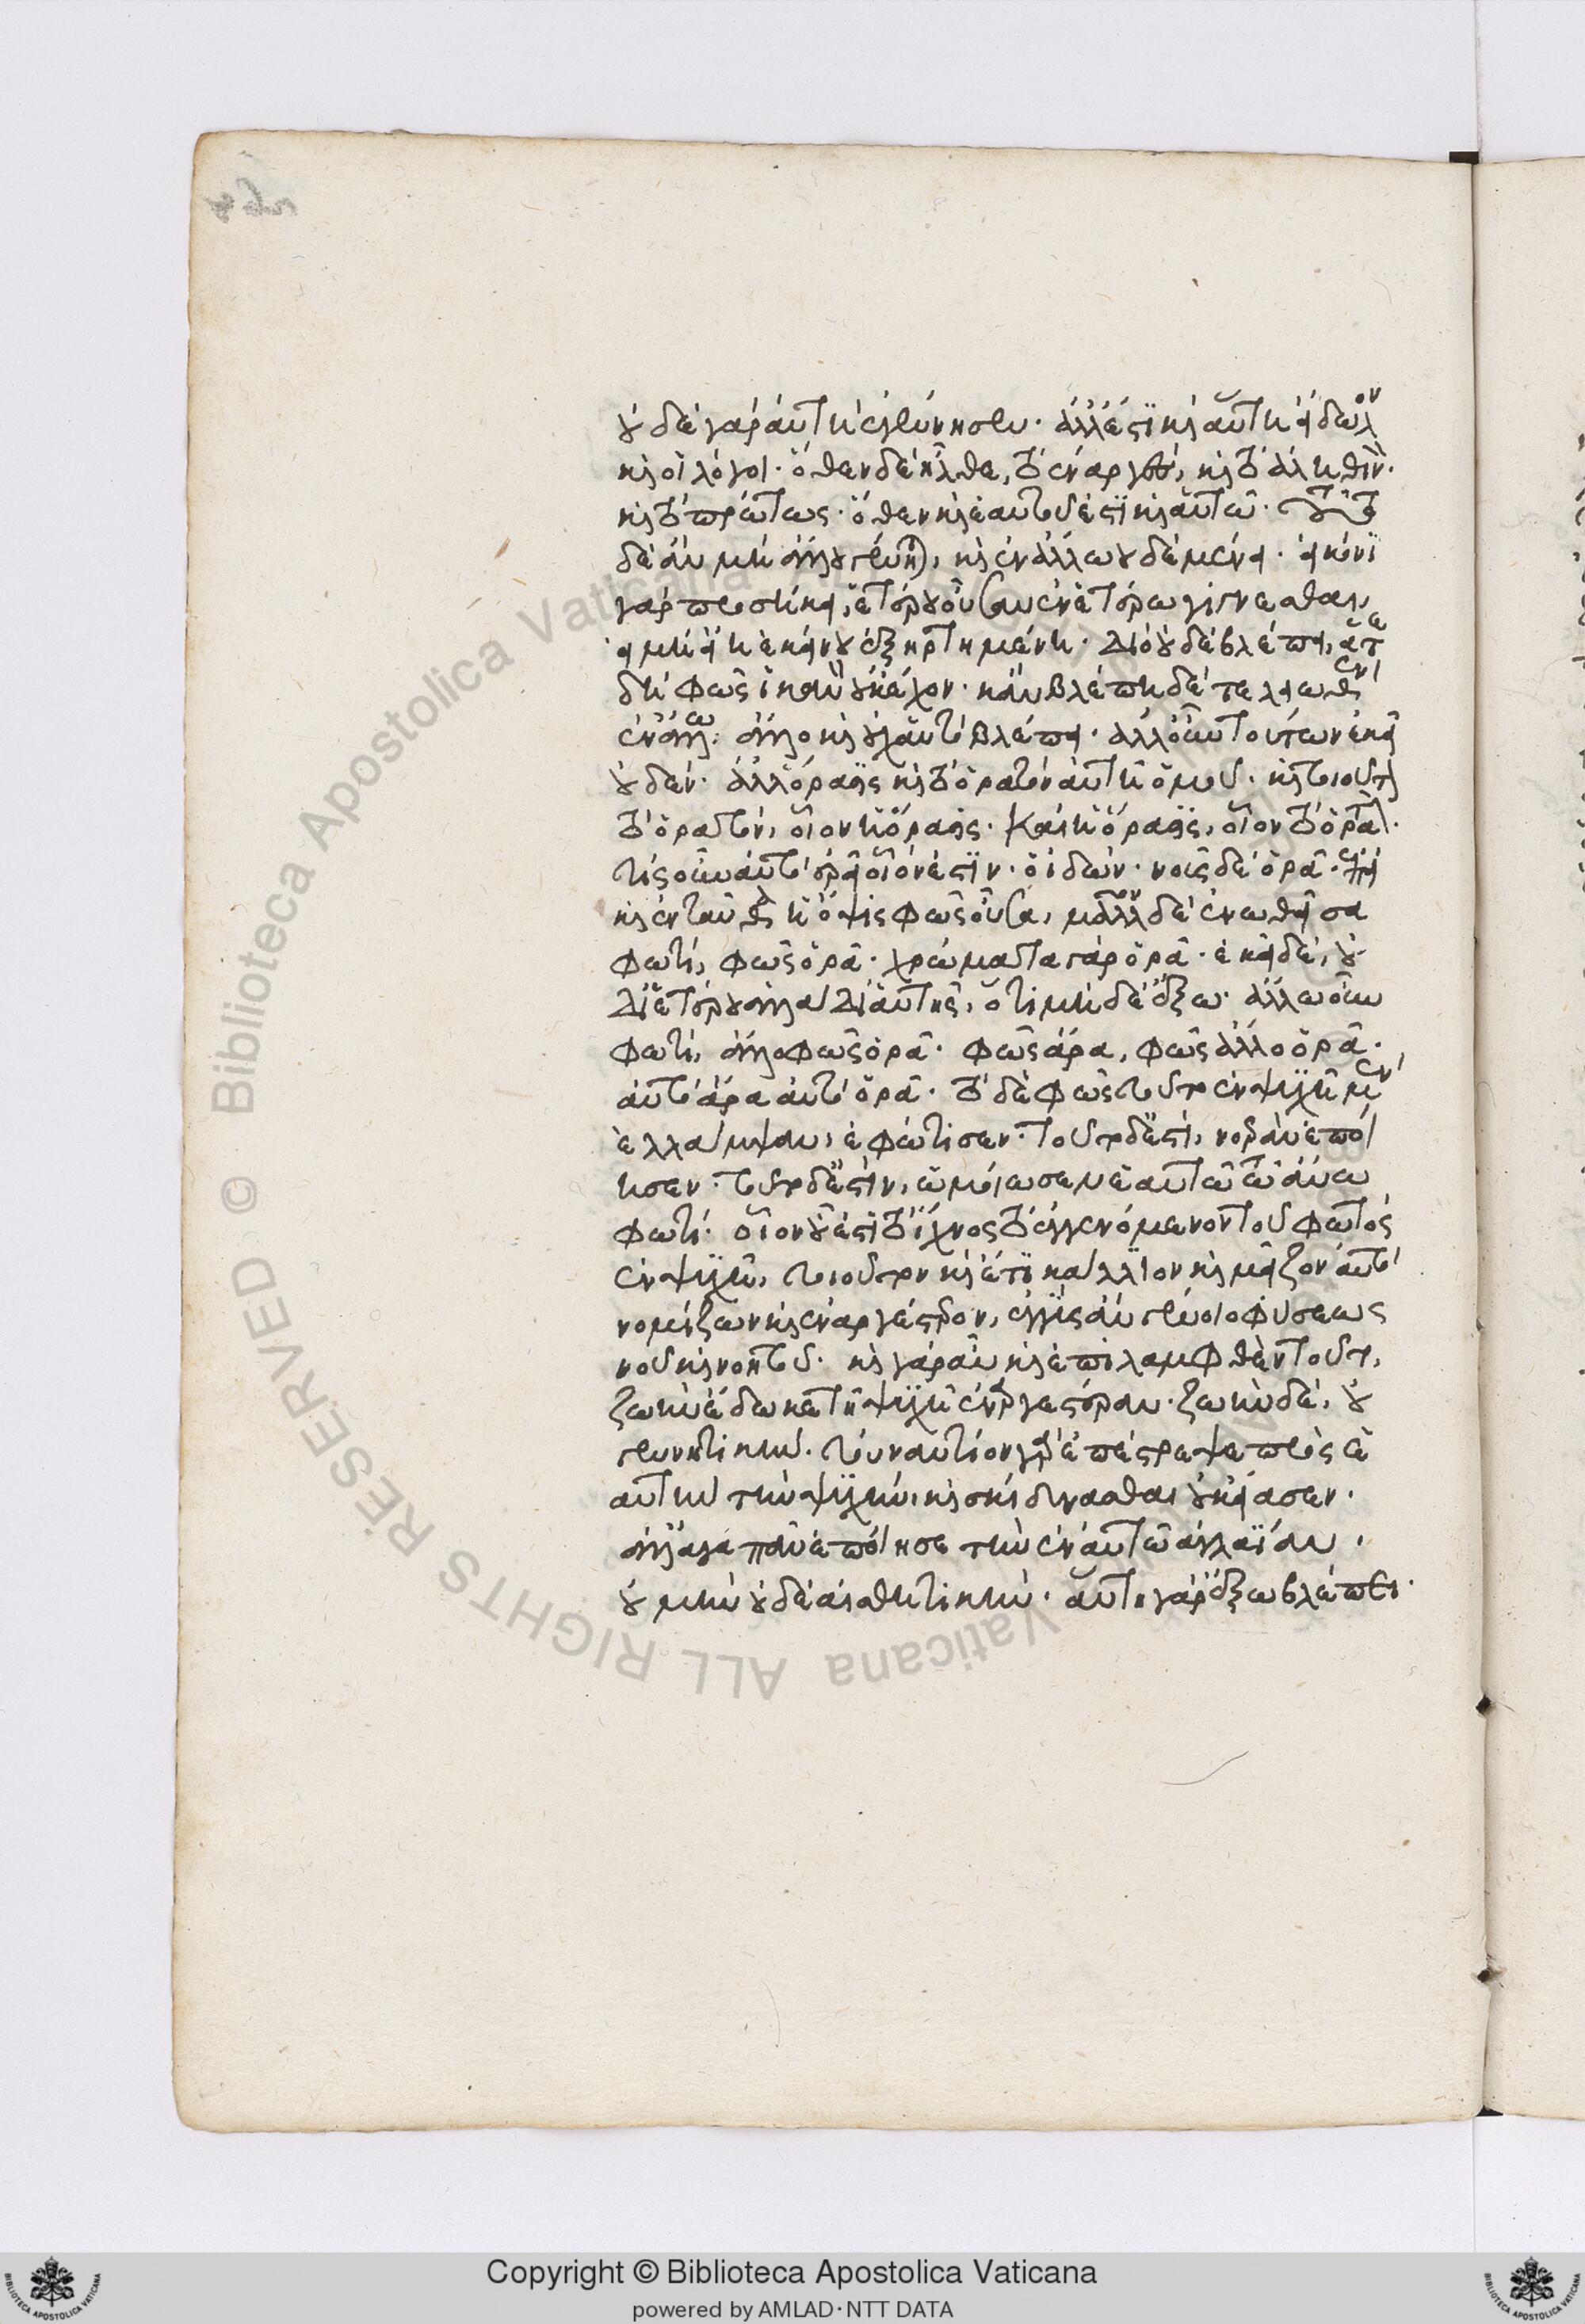 οὐδὲ γὰρ αὐτὴ ἐγέννησεν. ἀλλ' ἔστι καὶ αὕτη εἴδωλον
καὶ οἱ λόγοι. ὅθεν δὲ ἦλθε, τὸ ἐναργὲς, καὶ τὸ ἀληθινὸν.
καὶ τὸ πρώτως. ὅθεν καὶ ἑαυτοῦ ἐστι καὶ αὐτῷ. τοῦτο
δὲ ἂν μὴ ἄλλου γένηται, καὶ ἐν ἄλλω οὐδὲ μένει. εἰκόνι
γὰρ προσήκει, ἑτέρου οὖσαν ἐν ἑτέρω γίγνεσθαι,
εἰ μὴ εἴη ἐκείνου ἐξηρτημένη. διὸ οὐδὲ βλέπει, ἅτε
δὴ φῶς ἱκανὸν οὐκ ἔχον. κἂν βλέπη δὲ τελειωθὲν
ἐν ἄλλω. ἄλλο καὶ οὐχ αὑτὸ βλέπει. ἀλλ' οὖν τούτων ἐκεῖ
οὐδέν. ἀλλ' ὅρασις καὶ τὸ ὁρατὸν αὐτῇ ὁμοῦ. καὶ τοιοῦτον
τὸ ὁρατὸν, οἷον ἡ ὅρασις. καὶ ἡ ὅρασις, οἷον τὸ ὁρατόν.
τίς οὖν αὐτὸ ἐρεῖ οἷόν ἐστιν. ὁ ἰδών. νοῦς δὲ ὁρᾷ. ἐπεὶ
καὶ ἐνταῦθα ἡ ὄψις φῶς οὖσα, μᾶλλον δὲ ἑνωθεῖσα
φωτὶ, φῶς ὁρᾷ. χρώματα γὰρ ὁρᾷ. ἐκεῖ δὲ, οὐ
δι' ἑτέρου ἀλλὰ δι' αὑτῆς, ὅτι μηδὲ ἔξω. ἄλλω οὖν
φωτὶ, ἄλλο φῶς ὁρᾷ. φῶς ἄρα, φῶς ἄλλο ὁρᾷ.
αὐτὸ ἄρα αὑτὸ ὁρᾷ. τὸ δὲ φῶς τοῦτο ἐν ψυχῇ μὲν
ἐλλάμψαν, ἐφώτισεν. τοῦτο δ' ἐστὶ, νοερὰν ἐποί
ησεν. τοῦτο δ' ἐστὶν, ὡμοίωσεν ἑαυτῷ τῷ ἄνω
φωτί. οἷον οὖν ἐστι τὸ ἴχνος τὸ ἐγγενόμενον τοῦ φωτὸς
ἐν ψυχῇ, τοιοῦτον καὶ ἔτι κάλλιον καὶ μεῖζον αὐτὸ
νομίζων καὶ ἐναργέστερον, ἐγγὺς ἂν γένοιο φύσεως
νοῦ καὶ νοητοῦ. καὶ γὰρ αὖ καὶ ἐπιλαμφθὲν τοῦτο,
ζωὴν ἔδωκε τῇ ψυχῇ ἐναργεστέραν. ζωὴν δὲ, οὐ
γεννητικήν. τοὐναντίον γὰρ ἐπέστρεψε πρὸς ἑ
αυτὴν τὴν ψυχὴν, καὶ σκίδνασθαι οὐκ εἴασεν.
ἀλλ' ἀγαπᾶν ἐποίησε τὴν ἐν αὐτῷ ἀγλαΐαν.
οὐ μὴν οὐδὲ αἰσθητικήν. αὕτη γὰρ ἔξω βλέπει.